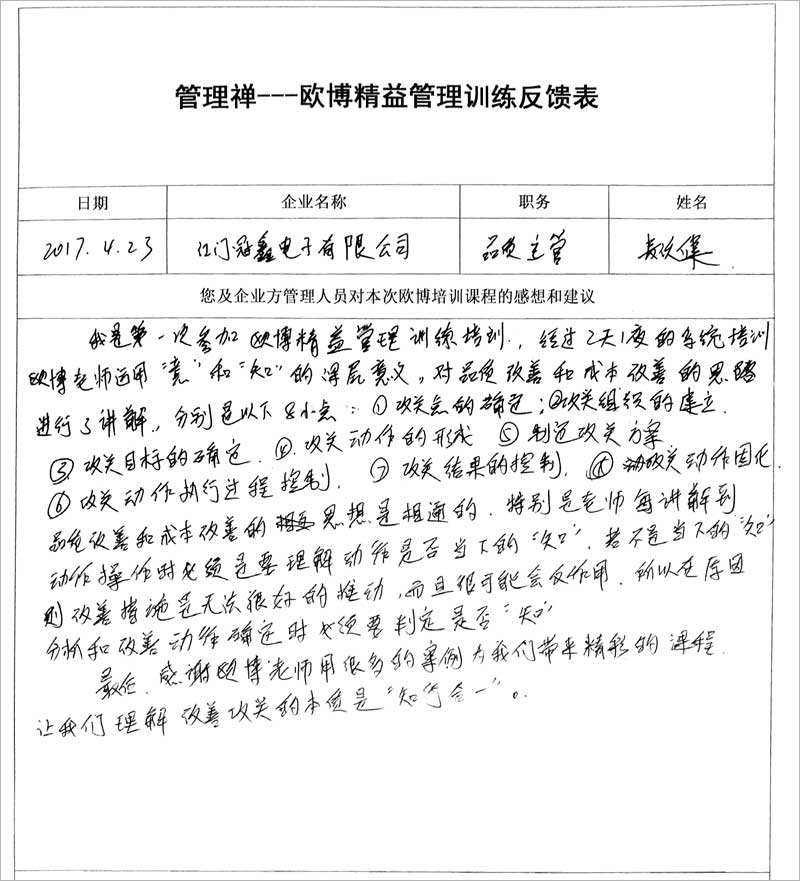 管理禅---欧博精益管理训练反馈表
日期 企业名称 职务 姓名
2017.4.23 江门冠鑫电子有限公司 品质主管
您及企业方管理人员对本次欧博培训课程的感想和建议
我是第一次参加欧博精益管理训练培训,经过2天1夜的系统培训
欧博老师运用"意"和"知"的深层意义,对品质改善和成本改善的思路
进行了讲解,分别是以下8小点:①攻关点的确定;②攻关组织的建立.
③攻关目标的确定.④攻关动作的形成 ⑤制造攻关方案
⑥攻关动作执行过程控制.⑦攻关结果的控制.⑧攻关动作固化.
品质改善和成本改善的思想是相通的.特别是老师每讲解到
动作操作时必须是要理解动作是否当下的"知".若不是当下的"知"
则改善措施是无法很好的推动,而且很可能会反作用.所以在原因
分析和改善动作确定时必须要判定是否"知"
最后.感谢欧博老师用很多的案例为我们带来精彩的课程.
让我们理解改善攻关的本质是"知行合一"。